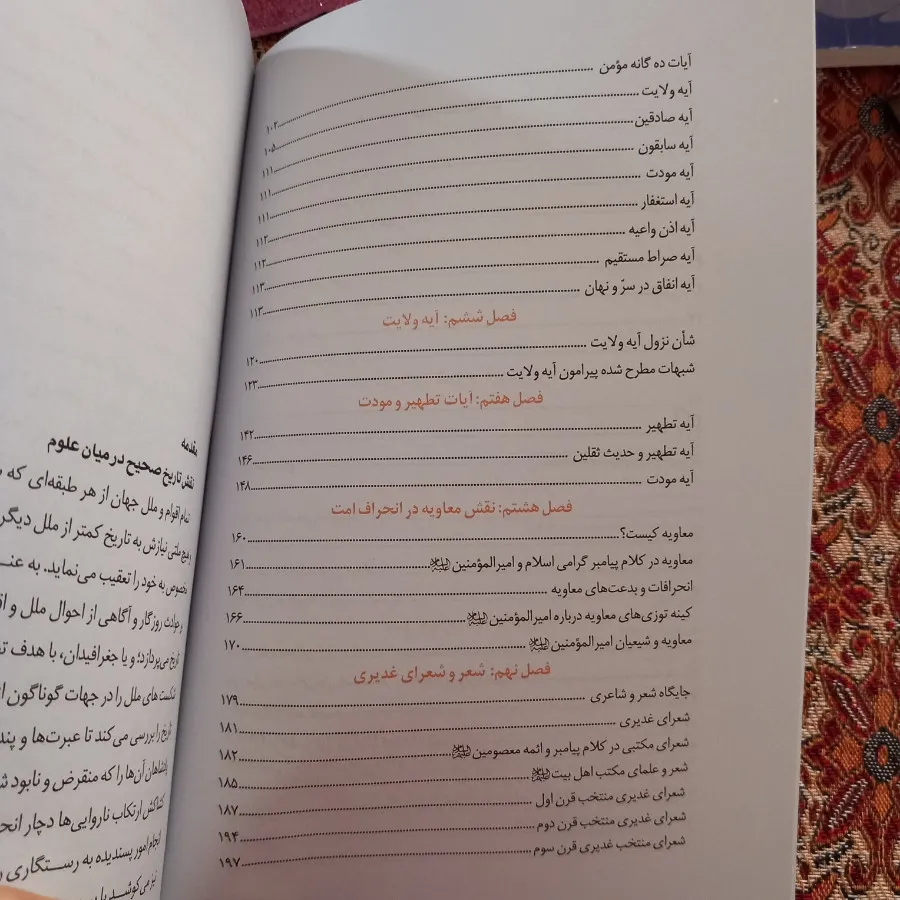 آیات ده گانه مؤمن ۱۰۲
آیه ولایت ۱۰۵
آیه صادقین ۱۱۱
آیه سابقون ۱۱۱
آیه مودت ۱۱۱
آیه استغفار ۱۱۲
آیه اذن واعیه ۱۱۲
آیه صراط مستقیم ۱۱۳
آیه انفاق در سرّ و نهان ۱۱۳
فصل ششم: آیه ولایت
شأن نزول آیه ولایت ۱۲۰
شبهات مطرح شده پیرامون آیه ولایت ۱۲۳
فصل هفتم: آیات تطهیر و مودت
آیه تطهیر ۱۴۲
آیه تطهیر و حدیث ثقلین ۱۴۶
آیه مودت ۱۴۸
فصل هشتم: نقش معاویه در انحراف امت
معاویه کیست؟ ۱۶۰
معاویه در کلام پیامبر گرامی اسلام و امیرالمؤمنین ۱۶۱
انحرافات و بدعت‌های معاویه ۱۶۴
کینه توزی‌های معاویه درباره امیرالمؤمنین ۱۶۶
معاویه و شیعیان امیرالمؤمنین ۱۷۰
فصل نهم: شعر و شعرای غدیری
جایگاه شعر و شاعری ۱۷۹
شعرای غدیری ۱۸۱
شعرای مکتبی در کلام پیامبر و ائمه معصومین ۱۸۲
شعر و علمای مکتب اهل بیت ۱۸۵
شعرای غدیری منتخب قرن اول ۱۸۷
شعرای غدیری منتخب قرن دوم ۱۹۴
شعرای منتخب غدیری قرن سوم ۱۹۷
مقدمه
نقش تاریخ صحیح در میان علوم
تمام اقوام و ملل جهان از هر طبقه‌ای که
هیچ ملتی نیازش به تاریخ کمتر از ملل دیگر
مخصوص به خود را تعقیب می‌نماید. به عنـ
و حوادث روزگار و آگاهی از احوال ملل و
تاریخ می‌پردازد؛ و یا جغرافیدان، با هدف
شکست های ملل را در جهات گوناگون
تاریخ را بررسی می‌کند تا عبرت‌ها و پند
پادشاهان آن‌ها را که منقرض و نابود
کشاکش ارتکاب ناروایی‌ها دچار
انجام امور پسندیده به رستگاری
نیز می‌کوشد